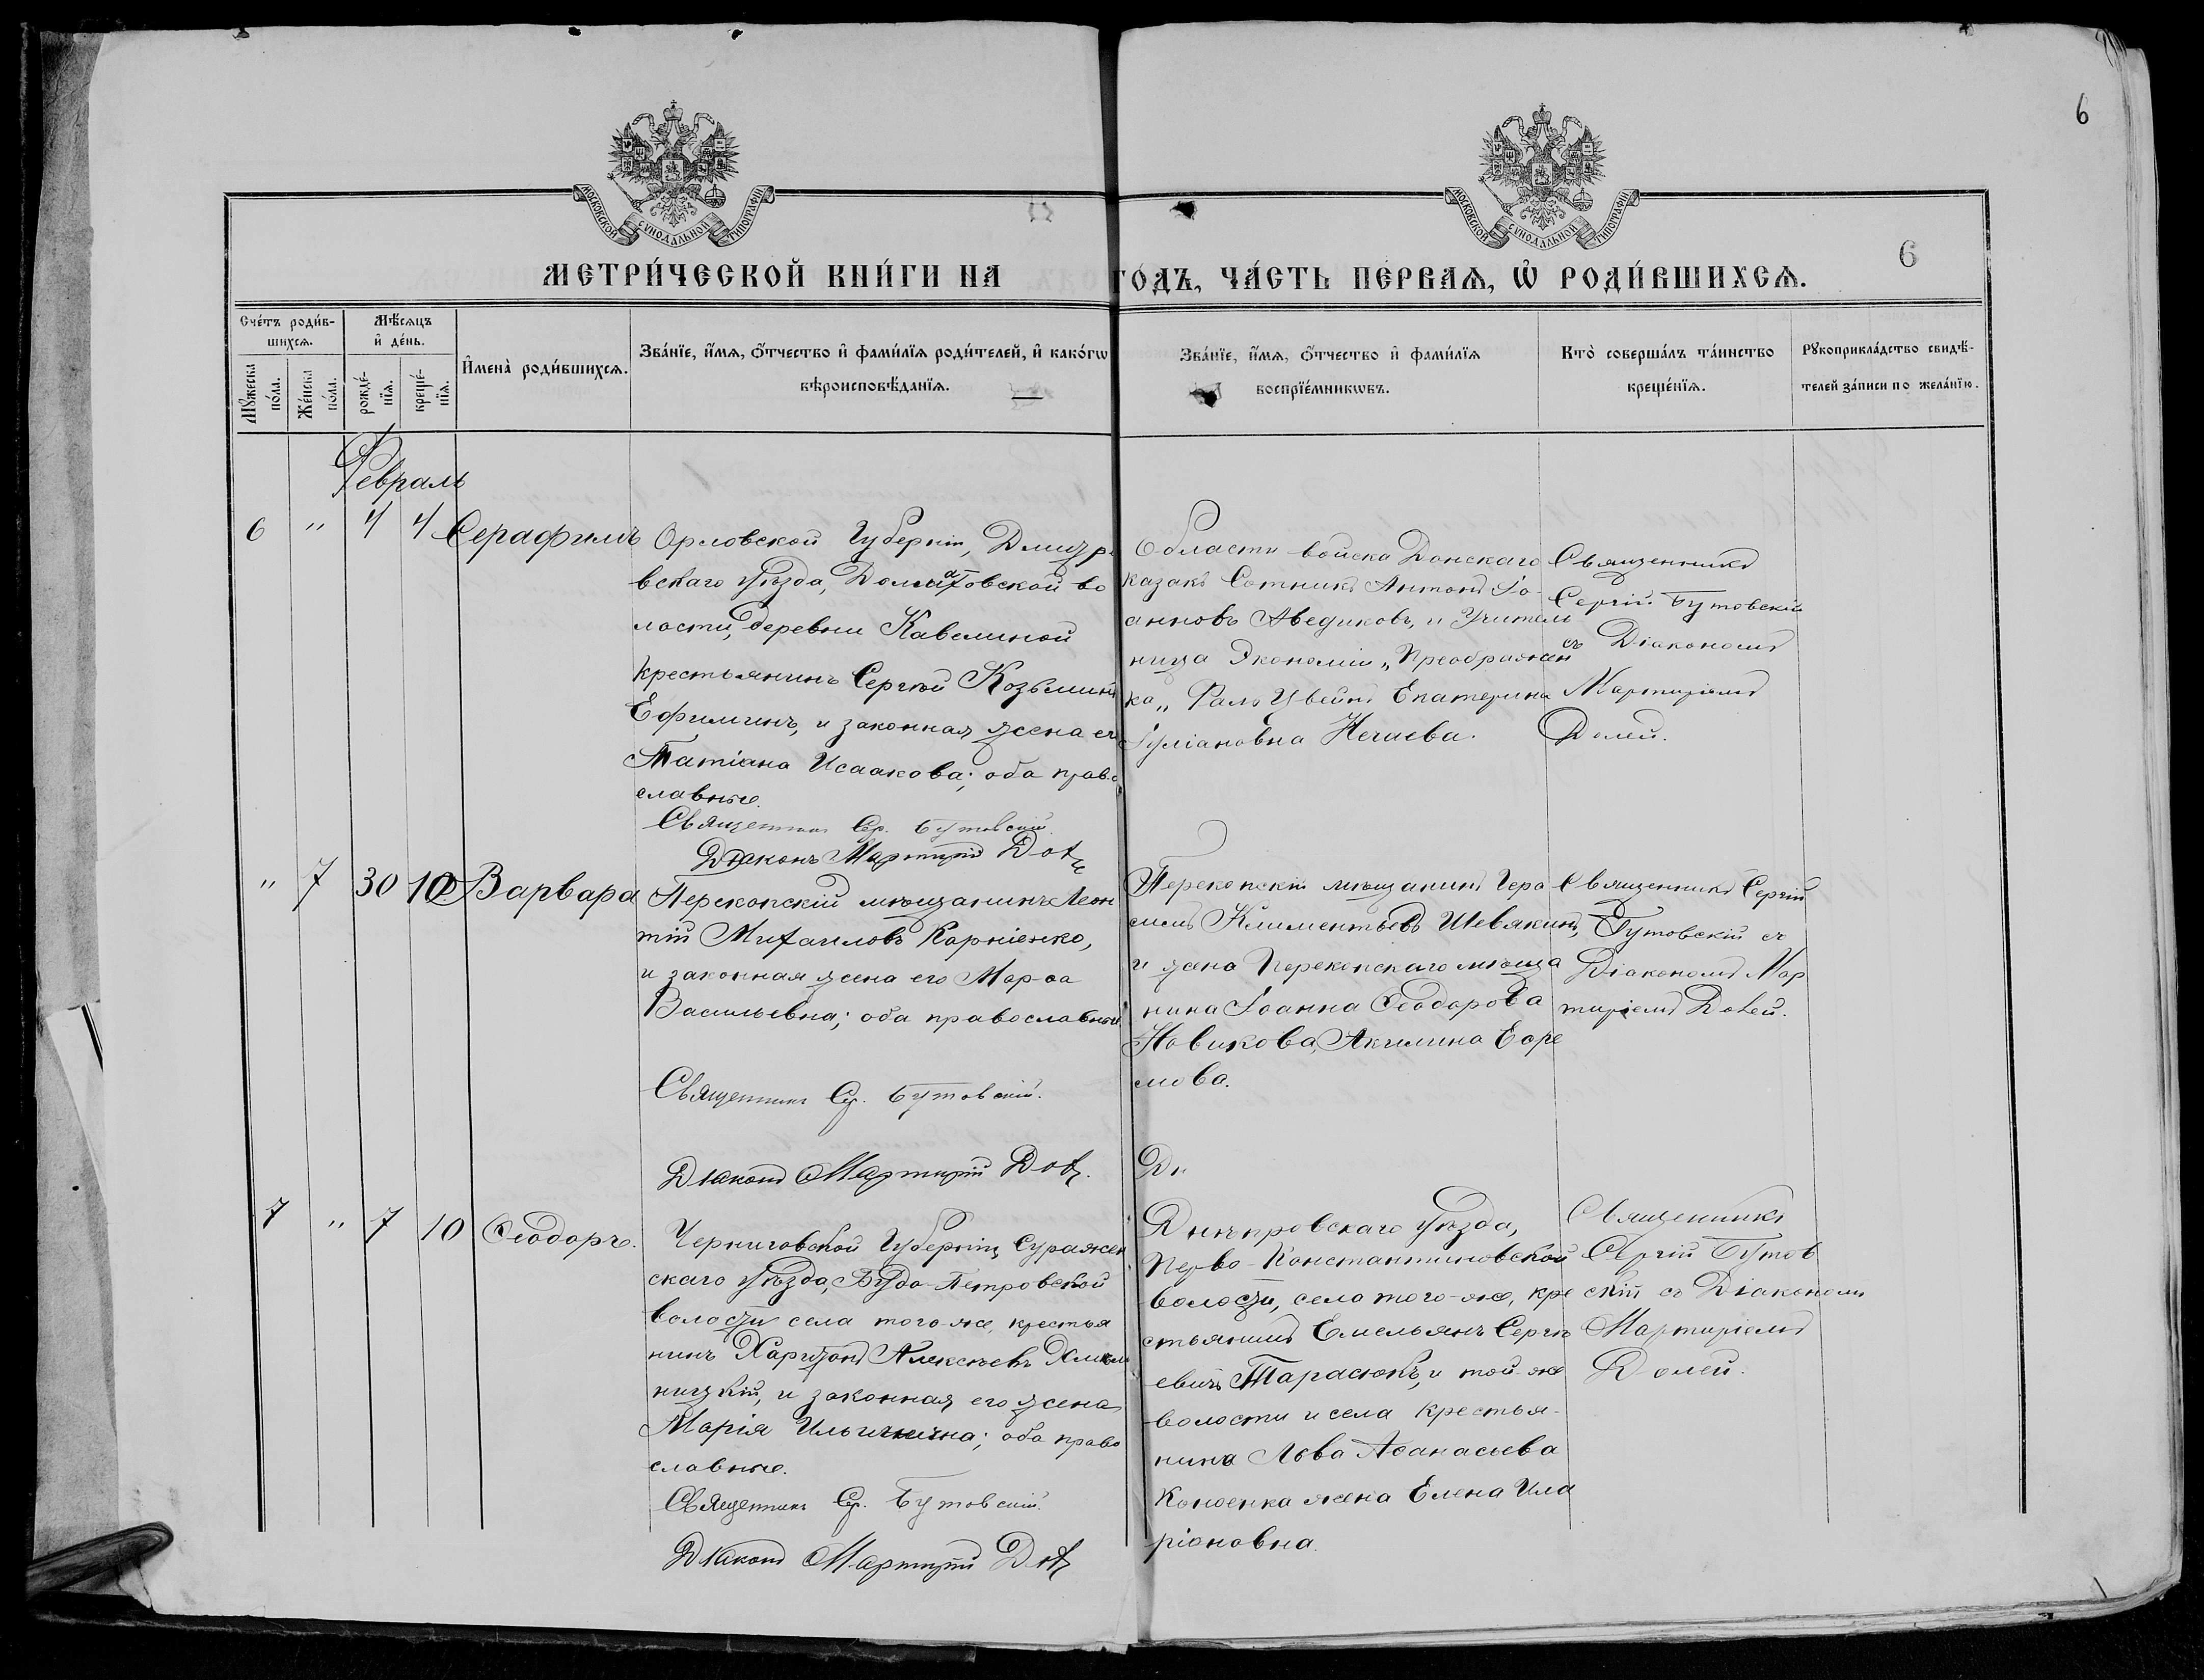 6
МОСКОВСКОЙ СѴНОДАЛЬНОЙ ТИПОГРАФІИ
МОСКОВСКОЙ СѴНОДАЛЬНОЙ ТИПОГРАФІИ
6
МЕТРИ́ЧЕСКОЙ КНИ́ГИ НА ГО́ДЪ, ЧА́СТЬ ПЕ́РВАѦ, Ѡ҆ РОДИ́ВШИХСѦ.
Сче́тъ роди́в-
шихсѧ.
Мѣ́сѧцъ
и҆ де́нь.
Мꙋ́жеска
по́ла.
Же́нска
по́ла.
рожде́-
нїѧ.
креще́-
нїѧ.
И҆мена̀ роди́вшихсѧ.
Зва́нїе, и҆́мѧ, ѻ҆́тчество и҆ фами́лїѧ роди́телей, и҆ како́гѡ
вѣроисповѣ́данїѧ.
Зва́нїе, и҆́мѧ, ѻ҆́тчество и҆ фами́лїѧ
воспрїе́мникѡвъ.
Кто̀ соверша́лъ та́инство
креще́нїѧ.
Рꙋкоприкла́дство свидѣ́-
телей за́писи по жела́нїю.
Февраль
6 " 4 4 Серафимъ
Орловской Губерніи, Дмитро
вскаго уѣзда, Домаховской во
лости, деревни Кавелиной
крестьянинъ Сергѣй Козьминъ
Ефиминъ, и законная жена его
Татіана Исаакова; оба право
славные.
Священникъ Сер. Бутовскій.
Діаконъ Мартирій
Области войска Донскаго
казакъ Сотникъ Антонъ Іо-
анновъ Аведиковъ, и Учитель
ница Экономіи „Преображен
ка„ Фальцвейна Екатерина
Іуліановна Нечаева.
Священникъ
Сергій Бутовскій
съ Діакономъ
Мартиріемъ
" 7 30 10 Варвара
Перекопскій мѣщанинъ Леон
тій Михаиловъ Корніенко,
и законная жена его Марѳа
Васильевна; оба православные.
Священникъ Сер. Бутовскій.
Діаконъ Мартирій
Перекопскій мѣщанинъ Гера
симъ Климентьевъ Шевякинъ,
и жена Перекопскаго мѣща
нина Іоанна Ѳеодорова
Новикова, Акилина Ефре
мова.
Священникъ Сергій
Бутовскій съ
Діакономъ Мар
тиріемъ
7 " 7 10 Ѳеодоръ.
Черниговской Губерніи, Суражен
скаго уѣзда, Будо-Петровской
волости села того-же, крестья
нинъ Харитонъ Алексѣевъ Хмель
ницкій, и законная его жена
Марія Ильинична; оба право
славные.
Священникъ Сер. Бутовскій.
Діаконъ Мартирій
Дн
Днѣпровскаго уѣзда,
Перво-Константиновской
волости, села того-же, кре
стьянинъ Емельянъ Сергѣ
евичъ Тарасюкъ, и той-же
волости и села крестья-
нина Льва Аѳанасьева
жена Елена Ила
ріоновна.
Священникъ
Сергій Бутов
скій съ Діакономъ
Мартиріемъ